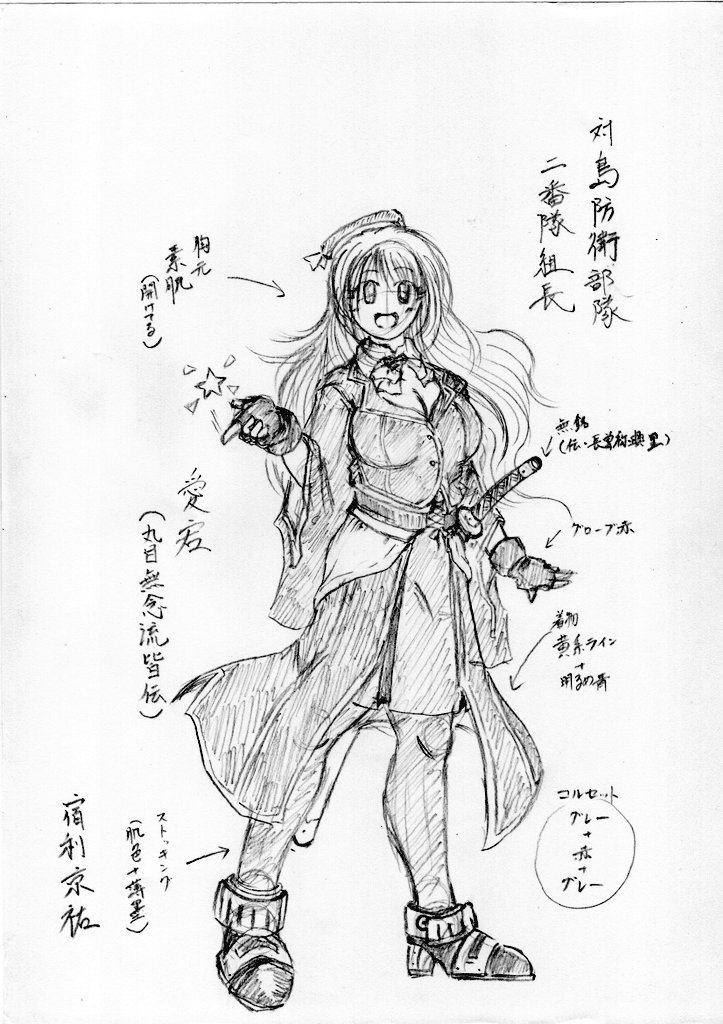 対島防衛部隊
二番隊組長
胸元
素肌
(開けてる)
無銘
グローブ赤
着物
黄系ライン
+
明るめ青
愛宕
(丸目無念流皆伝)
コルセット
グレー
+
赤
+
グレー
ストッキング
(肌色+薄墨)
宿利京祐